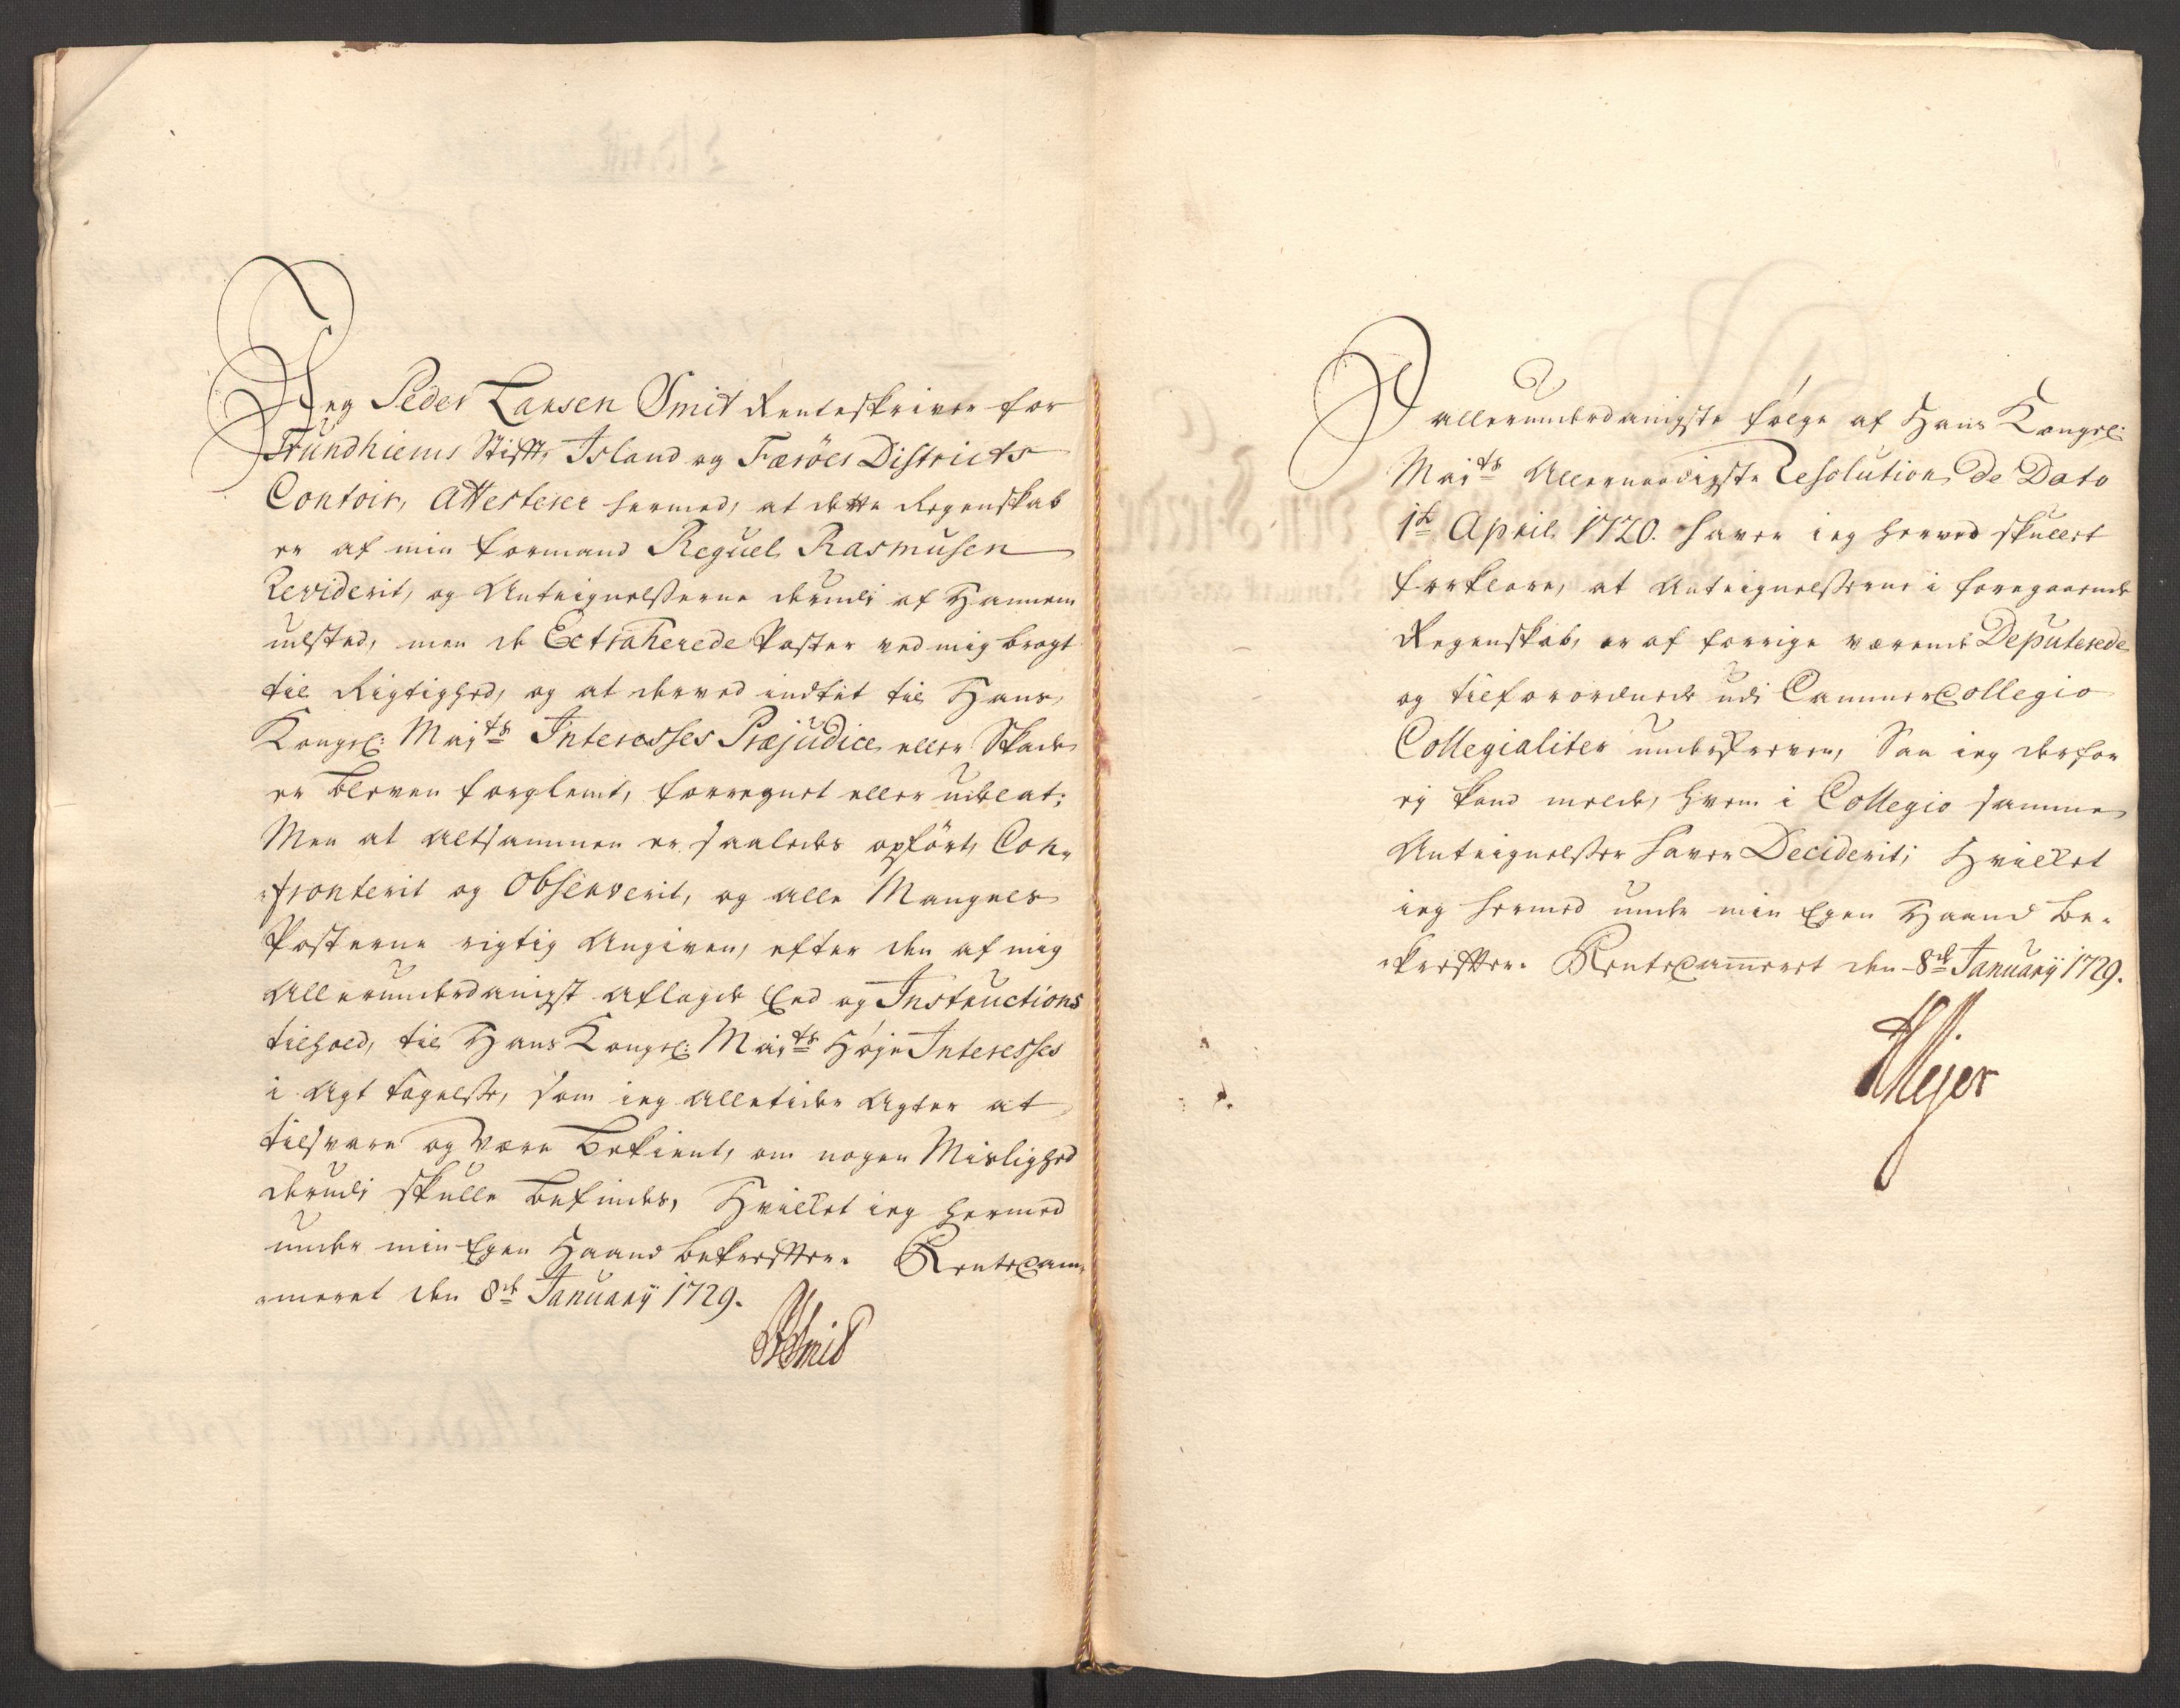 Jeg Peder Larsen Smit Renteskriver for
Trundhiems Stift, Island og Færöes Districts
Contoir, Attesterer hermed, at dette Regenskab
er af min formand Reguel Rasmusen
Reviderit, og Anteignelsserne derudi af Hannem
udsted, men de Extraherede Poster ved mig bragt
til Rigtighed, og at derved indtet til Hans
Kongel: Maj:ts Interesses Præjudice eller Skade
er bleven forglemt, forregnet eller udelat;
Men at altsammen er saaledes opfört, Con-
-fronterit og Observerit, og alle Mangels
Posterne rigtig Angiven, efter den af mig
Allerunderdanigst aflagde Eed og Instructions
tilhold, til Hans Kongel: Maj:ts Høje Interesses
i agt tagelse, som ieg alletider agter at
tilsvare og være bekient, om nogen Mislighed
derudi skulle befindes, Hvilket ieg hermed
under min Egen Haand bekrefter. RenteCam-
-meret den 8de Januarij 1729.
PLSmid
I allerunderdanigste følge af Hans Kongel:
Maj:ts Allernaadigste Resolution De Dato
1st April 1720. haver ieg herved skullet
forklare, at Anteignelsserne i foregaaende
Regenskab, er af forrige værende Deputerede
og tilforordnede udi CammerCollegio
Collegialiter underskreven, Saa ieg derfor
ej kand melde, hvem i Collegio samme
Anteignelsser haver Deciderit; Hvilket
ieg hermed under min Egen Haand be-
-krefter. RenteCammeret den 8de Januarij 1729.
Mejer